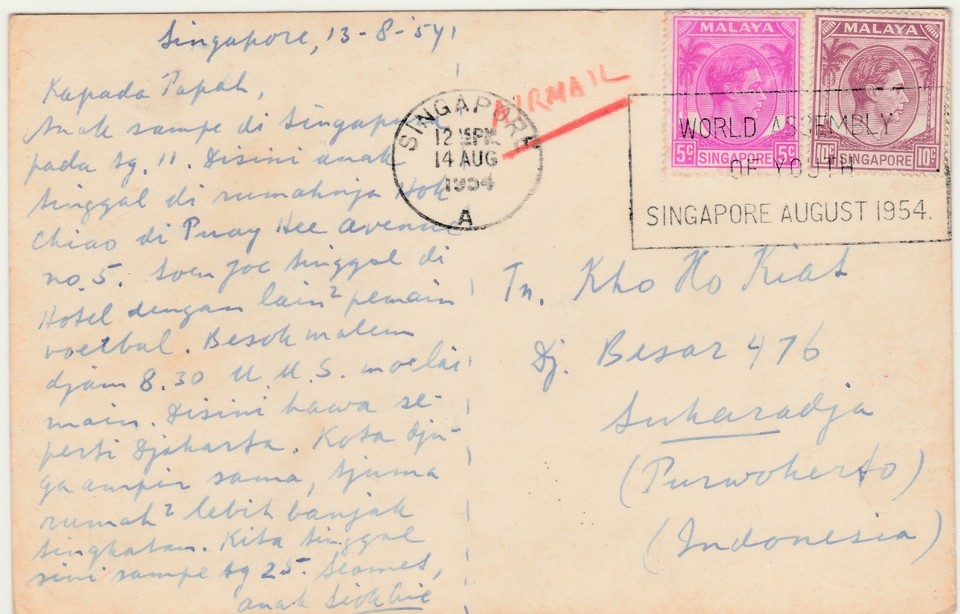 Singapore, 13-8-'54
Kapada Papah,
Anak sampe di Singapore
pada tg. 11. Disini anak
tinggal di rumahnja Hok
Chiao di Puay Hee avenue
no. 5. Soen Joe tinggal di
Hotel dengan lain² pemain
voetbal. Besok malem
djam 8.30 U.M.S. moelai
main. Disini hawa se-
perti Djakarta. Kota dju-
ga ampir sama, tjuma
rumah² lebih banjak
tingkatan. Kita tinggal
sini sampe tg 25. Slamet,
anak
AIRMAIL
SINGAPORE
12 PM
14 AUG
1954
A
MALAYA
5c SINGAPORE 5c
MALAYA
10c SINGAPORE 10c
WORLD ASSEMBLY
OF YOUTH
SINGAPORE AUGUST 1954.
Tn. Kho Ho Kiat
Dj. Besar 476
Sukaradja
(Purwokerto)
(Indonesia)